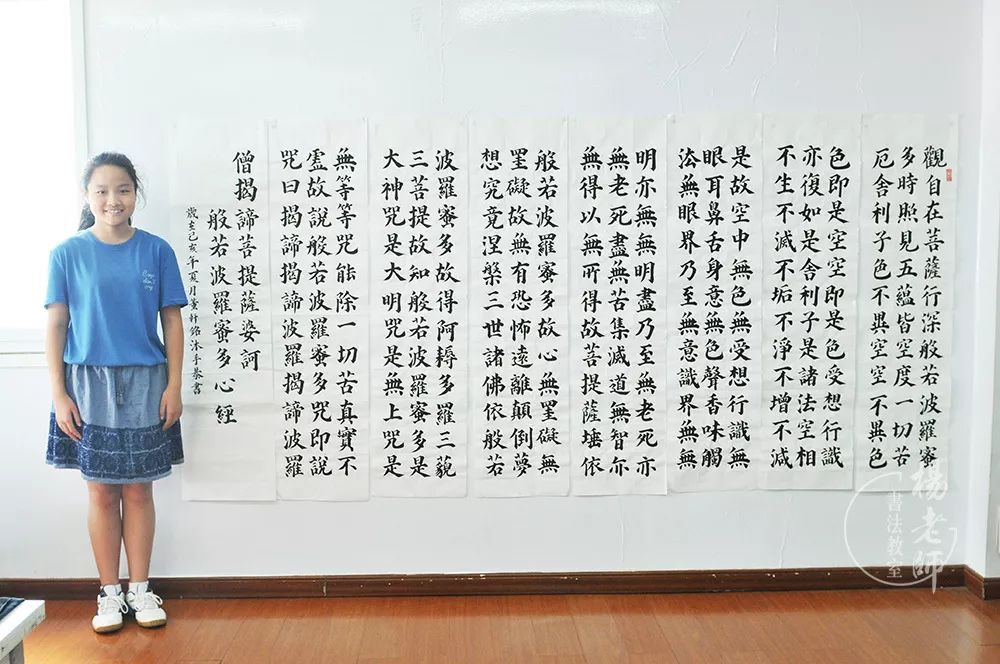 觀自在菩薩行深般若波羅蜜
多時照見五蘊皆空度一切苦
厄舍利子色不異空空不異色
色即是空空即是色受想行識
亦復如是舍利子是諸法空相
不生不滅不垢不淨不增不減
是故空中無色無受想行識無
眼耳鼻舌身意無色聲香味觸
法無眼界乃至無意識界無無
明亦無無明盡乃至無老死亦
無老死盡無苦集滅道無智亦
無得以無所得故菩提薩埵依
般若波羅蜜多故心無罣礙無
罣礙故無有恐怖遠離顛倒夢
想究竟涅槃三世諸佛依般若
波羅蜜多故得阿耨多羅三藐
三菩提故知般若波羅蜜多是
大神咒是大明咒是無上咒是
無等等咒能除一切苦真實不
虛故說般若波羅蜜多咒即說
咒曰揭諦揭諦波羅揭諦波羅
僧揭諦菩提薩婆訶
般若波羅蜜多心經
己亥年夏月沐手恭書
楊老師
書法教室